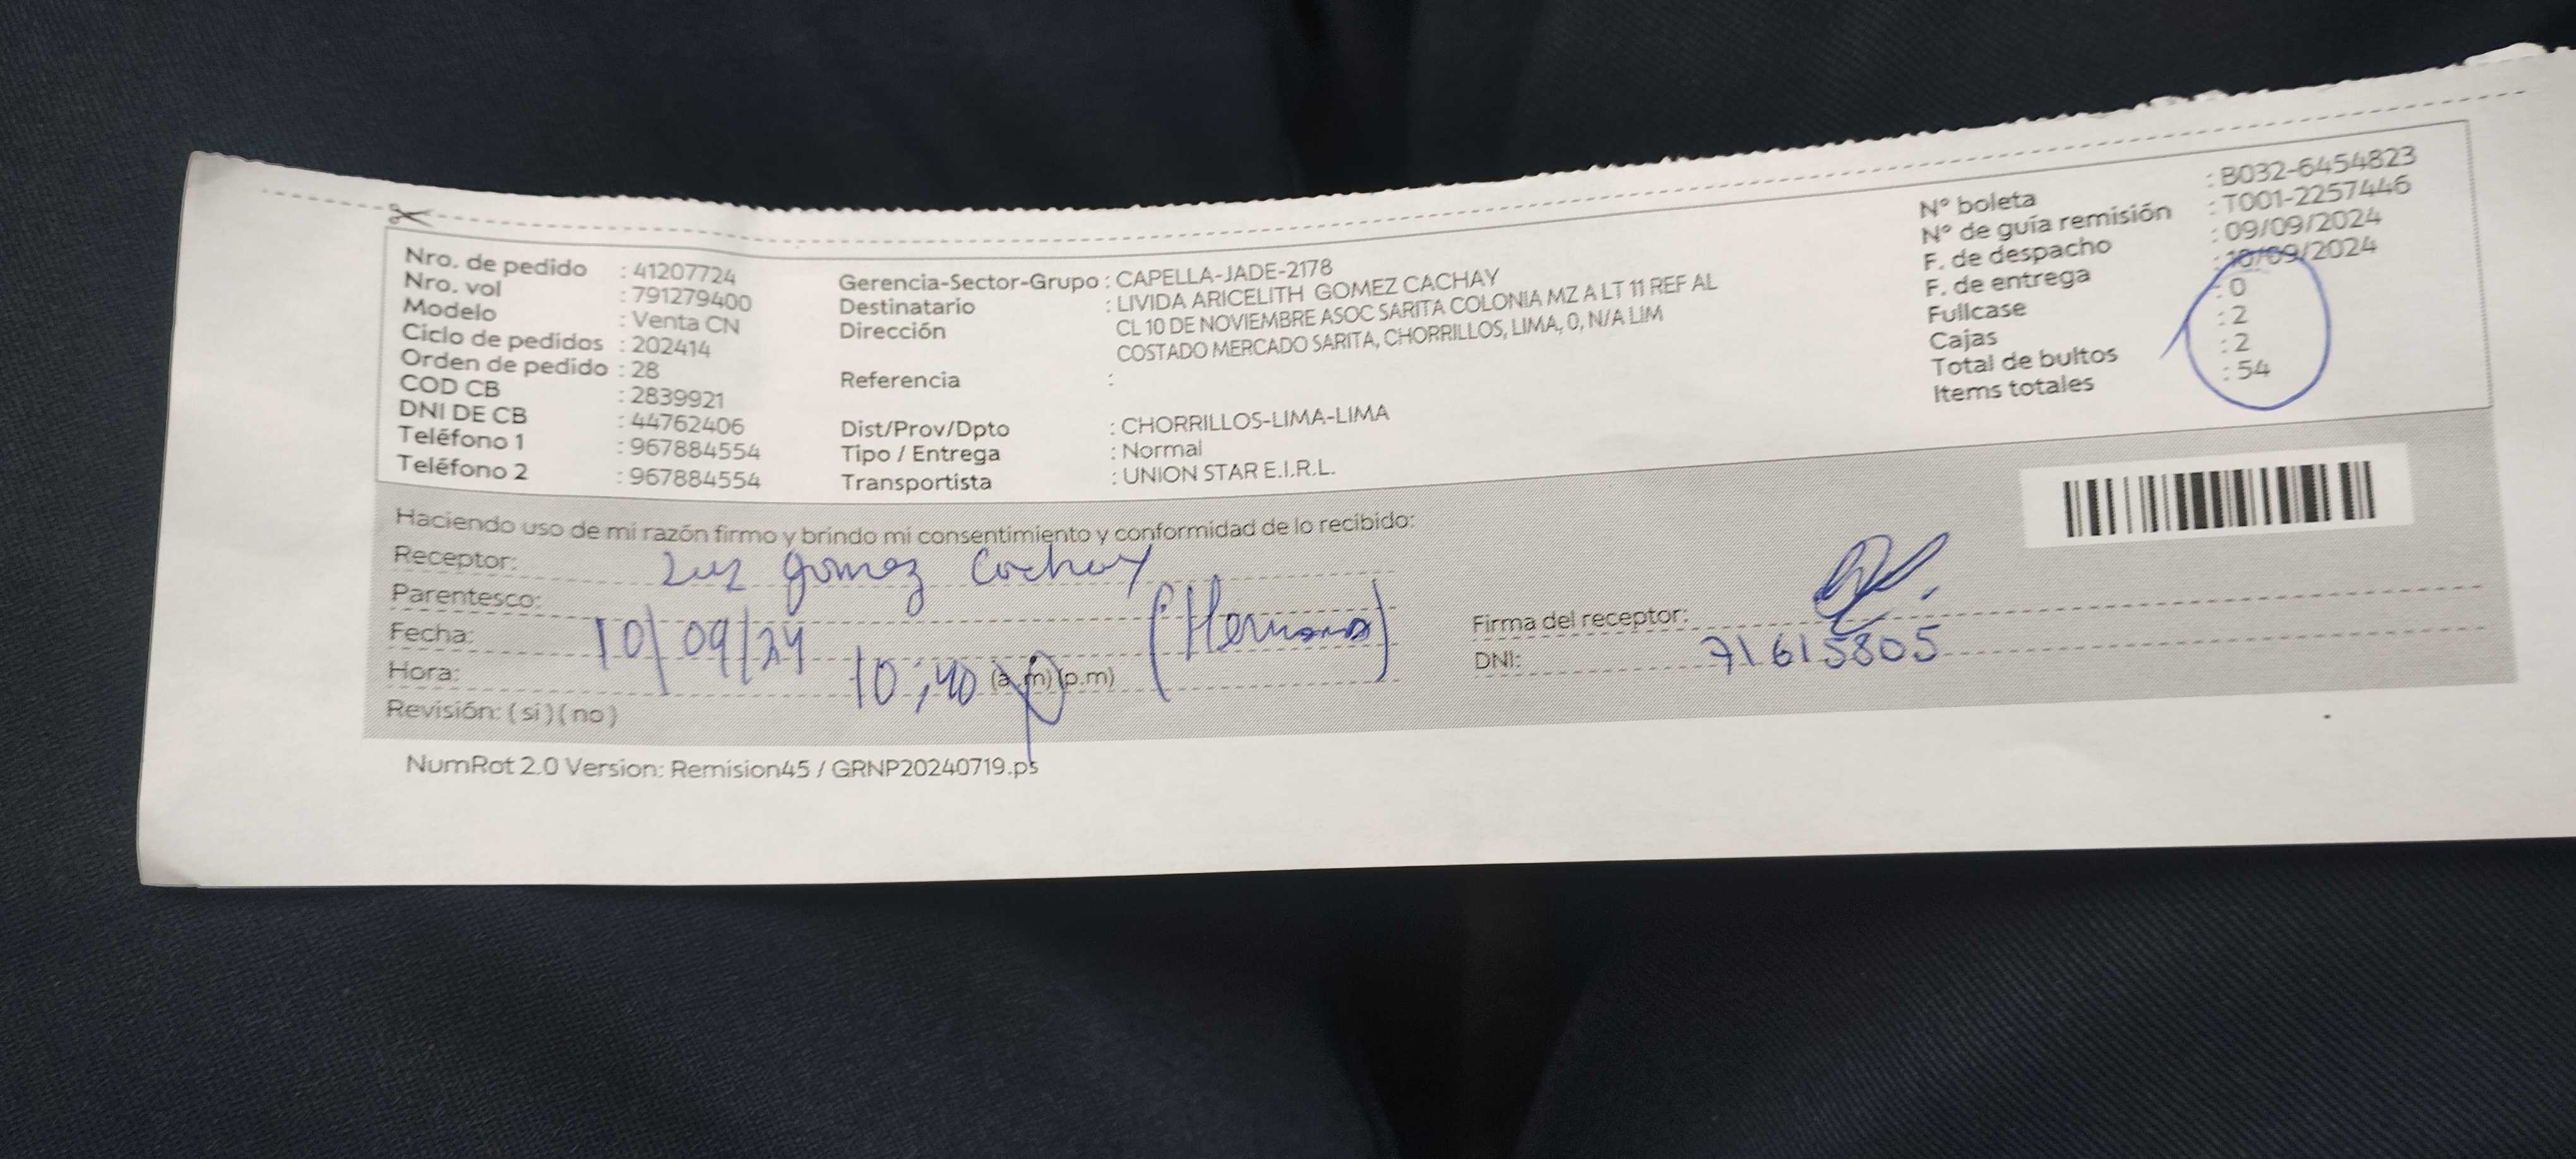 Nro. de pedido : 41207724
Nro. vol : 791279400
Modelo : Venta CN
Ciclo de pedidos : 202414
Orden de pedido : 28
COD CB : 2839921
DNI DE CB : 44762406
Teléfono 1 : 967884554
Teléfono 2 : 967884554
Gerencia-Sector-Grupo : CAPELLA-JADE-2178
Destinatario : LIVIDA ARICELITH GOMEZ CACHAY
Dirección CL 10 DE NOVIEMBRE ASOC SARITA COLONIA MZ A LT 11 REF AL
COSTADO MERCADO SARITA, CHORRILLOS, LIMA, 0, N/A LIM
Referencia :
Dist/Prov/Dpto : CHORRILLOS-LIMA-LIMA
Tipo / Entrega : Normal
Transportista : UNION STAR E.I.R.L.
N° boleta : B032-6454823
N° de guía remisión : T001-2257446
F. de despacho : 09/09/2024
F. de entrega : 10/09/2024
Fullcase : 0
Cajas : 2
Total de bultos : 2
Items totales : 54
Haciendo uso de mi razón firmo y brindo mi consentimiento y conformidad de lo recibido:
Receptor: Luz gomez Cachay
Parentesco: (Hermana)
Fecha: 10/09/24
Hora: 10:40 (a.m) (p.m)
Revisión: ( si ) ( no )
Firma del receptor:
DNI: 71615805
NumRot 2.0 Version: Remision45 / GRNP20240719.ps